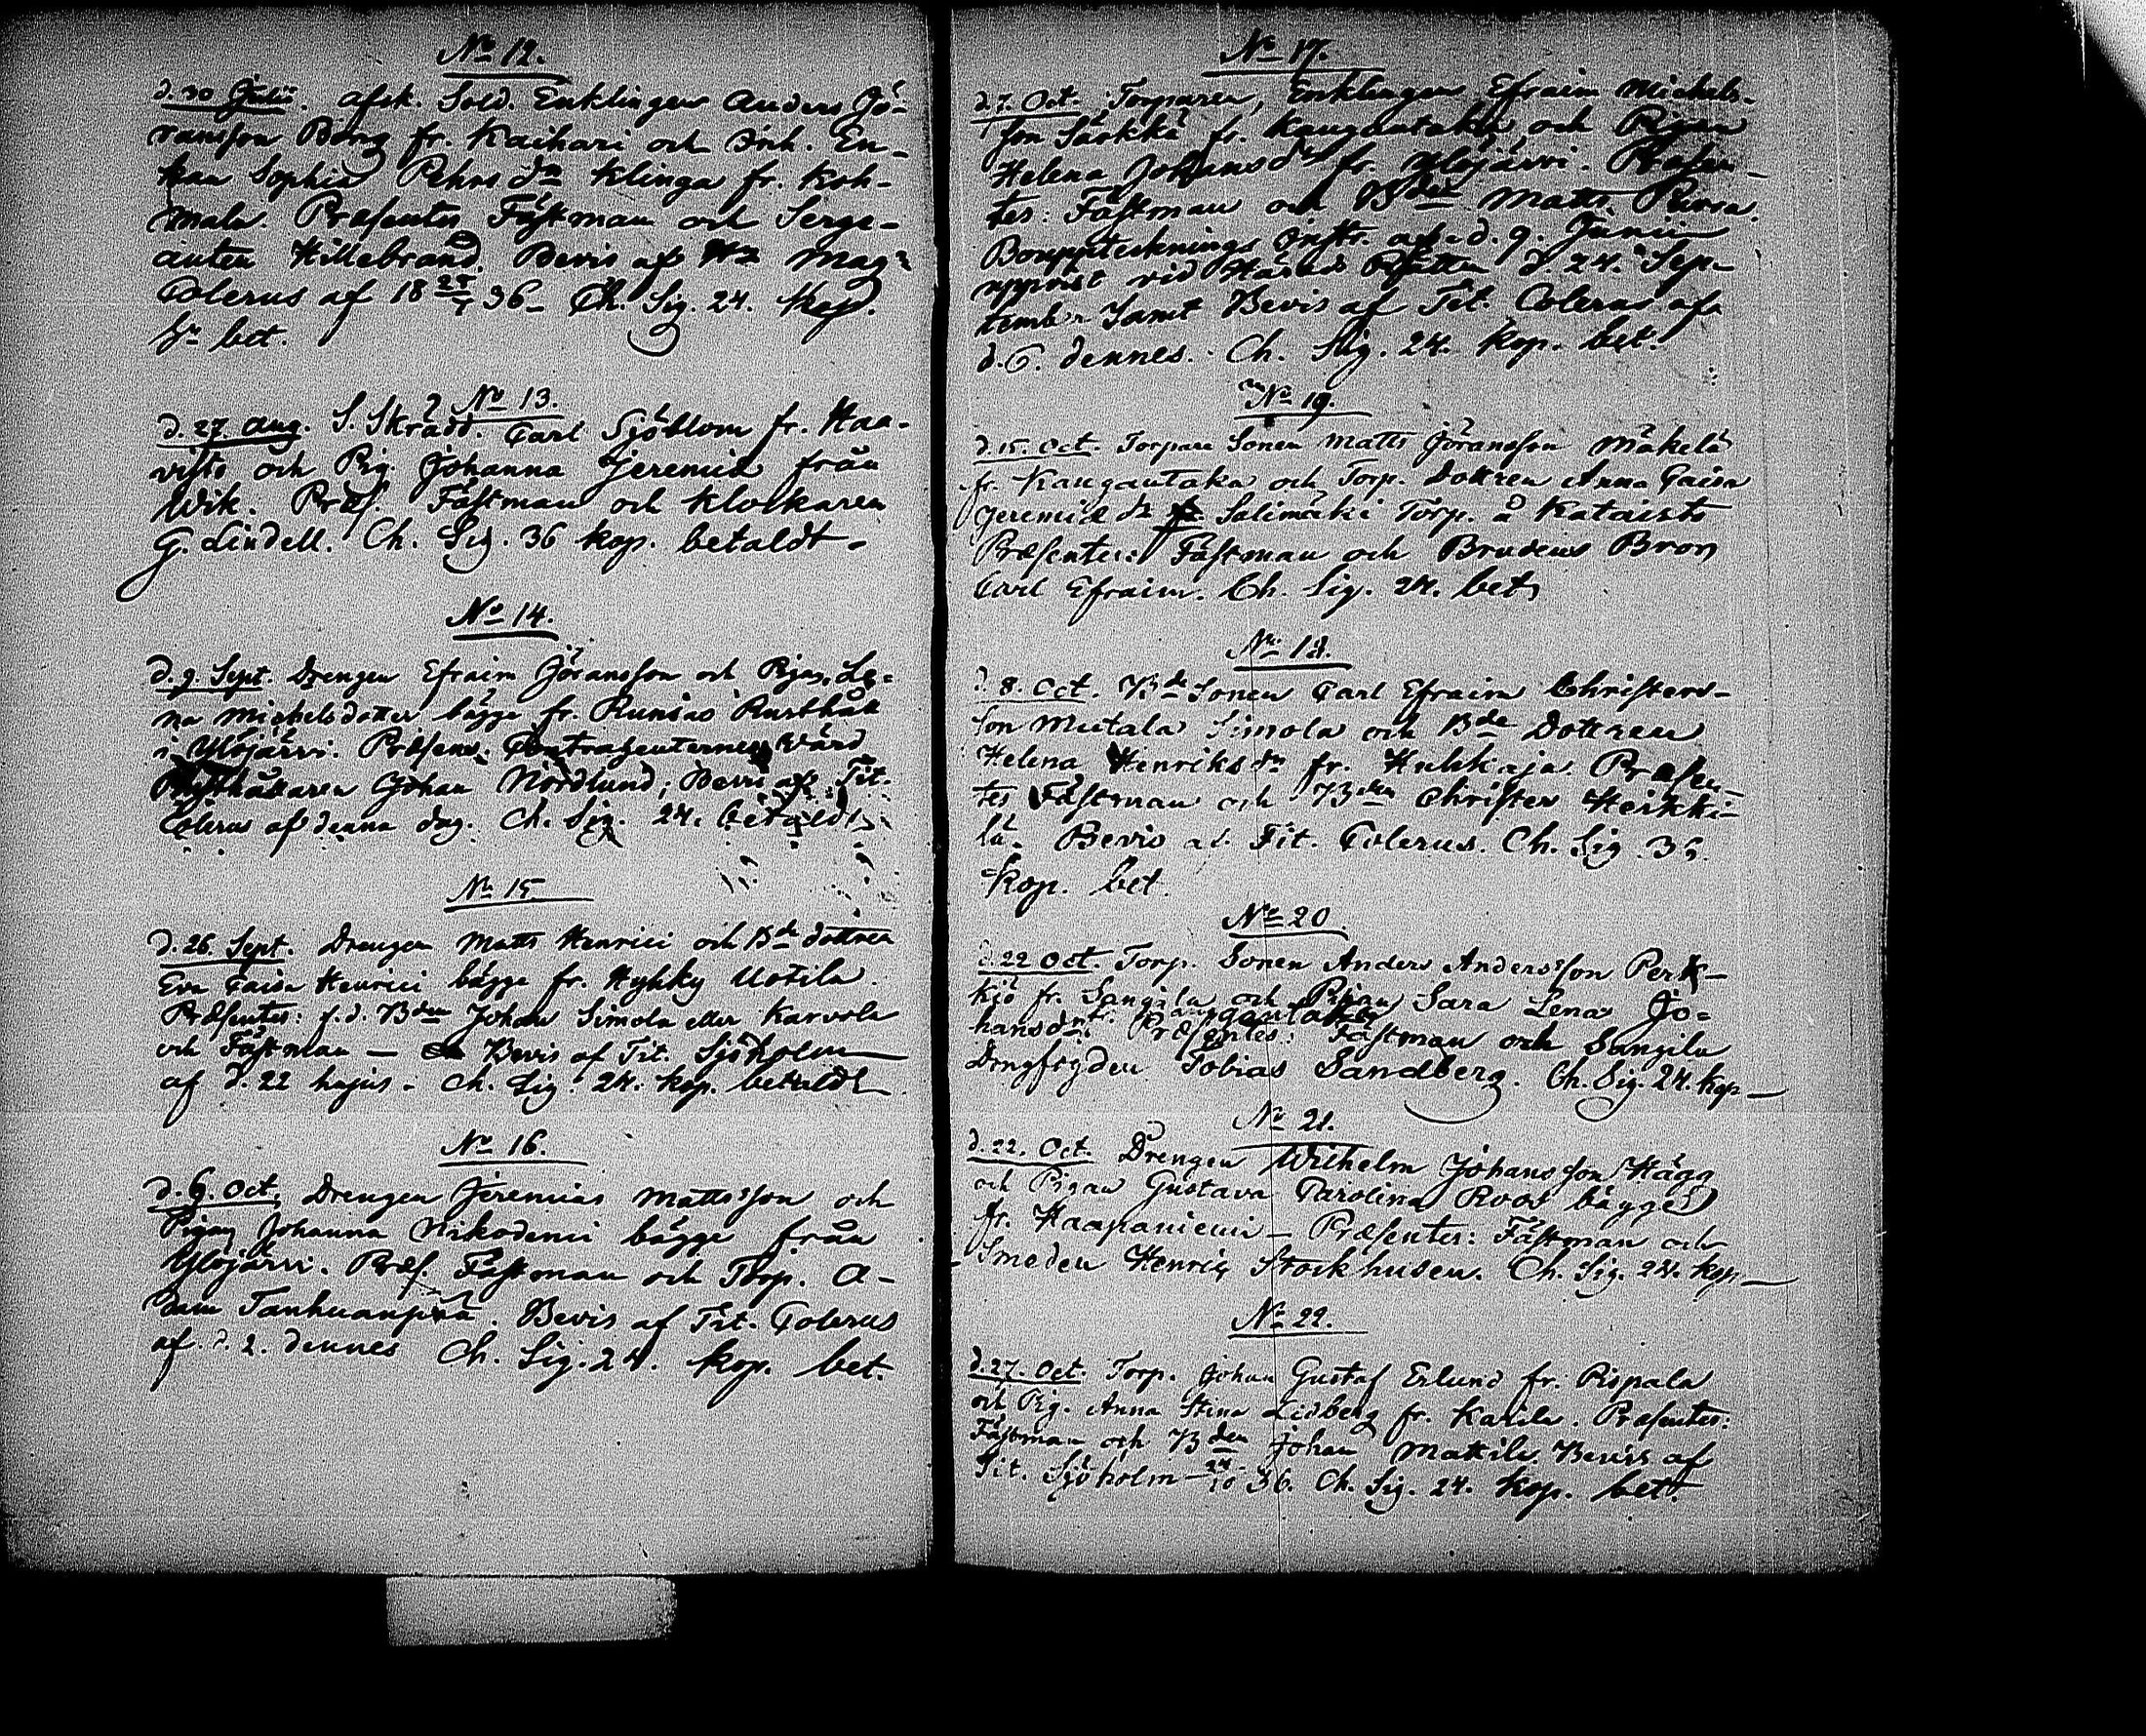 No 12.
d. 30 Julii. afsk. Sold. Enklingen Anders Jö-
ransson Borg fr. Kaihari och Inh. En-
kan Sophia Pehrs dr Klinga fr. Koh-
mala. Præsentes Fästman och Serge-
anten Hillebrand. Bevis af Mag.
Colerus af 18 25/7 36 - Ch. Sig. 24. Kop.
Sr bet.
No 13.
d. 27 Aug. S. Skrädd. Carl Sjöblom fr. Haa-
visto och Pig. Johanna Jeremiæ från
Wik. Præs. Fästman och Klockaren
G. Lindell. Ch. Sig. 36 kop. betaldt -
No 14.
d. 9. Sept. Drengen Efraim Jöransson och Pigan Le-
na Michelsdotter bägge fr. Runsas Rusthåll
i Ylöjärvi. Præsens: Contrahenternes Värd
Rusthållaren Johan Nordlund; Bevis af Tit.
Colerus af denna dag. Ch. Sig. 24. betaldt
No 15.
d. 26 Sept. Drengen Matts Henrici och Bde dottren
Eva Caisa Henrici bägge fr. Hyhky Uotila.
Præsentes: f.d. Bden Johan Simola eller Karvola
och Fästman — Bevis af Tit. Sjöholm
af d. 22 hujus - Ch. Sig. 24. kop. betaldt
No 16.
d. 6. Oct. Drengen Jeremias Mattsson och
Pigan Johanna Nikodemi bägge från
Ylöjärvi. Præs. Fästman och Torp. A-
dam Tanhuanpää. Bevis af Tit. Colerus
af d. 2. dennes Ch. Sig. 24. kop. bet.
No 17.
d. 7. Oct. Torparen, Enklingen Efraim Michels-
son Särkkä fr. Kaugantaka och Pigan
Helena Johansdr fr. Ylöjärvi. Præsen-
tes: Fästman och Bden Matts Pursa.
Boupptecknings Instr. af d. 9. Junii
uppvist vid Härads Rätten d. 24. Sep-
temb. Samt Bevis af Tit. Colerus af
d. 6. dennes. Ch. Sig. 24. kop. bet.
No 19.
d. 15. Oct. Torpare Sonen Matts Jöransson Mäkelä
fr. Kaugantaka och Torp. Dottren Anna Caisa
Jeremiæ dr Salimäki Torp. å Kataisto
Præsentes: Fästman och Brudens Bror
Carl Efraim. Ch. Sig. 24. bet.
No 18.
d. 8. Oct. Bde Sonen Carl Efraim Christers-
son Mutala Simola och Bde Dottren
Helena Henriks dr fr. Hulkkaja. Præsen-
tes Fästman och Bden Christer Heikki-
lä. Bevis af Tit. Colerus. Ch. Sig. 36.
Kop. bet.
No 20
d. 22 Oct. Torp. Sonen Anders Andersson Perk-
kiö fr. Sangila och Pigan Sara Lena Jo-
hansdr fr. Kaugantaka Præsentes: Fästman och Sangila
Drengfogden Tobias Sandberg. Ch. Sig. 24. kop —
No 21.
d. 22. Oct. Drengen Wilhelm Johansson Hägg
och Pigan Gustava Carolina Roos bägge
fr. Haapaniemi — Præsentes: Fästman och
Smeden Henric Stockhusen. Ch. Sig. 24. kop —
No 22.
d. 27. Oct. Torp. Johan Gustaf Erlund fr. Pispala
och Pig. Anna Stina Lidberg fr. Karila. Præsentes:
Fästman och Bden Johan Mattila. Bevis af
Tit. Sjöholm 24/10 36. Ch. Sig. 24. kop. bet.